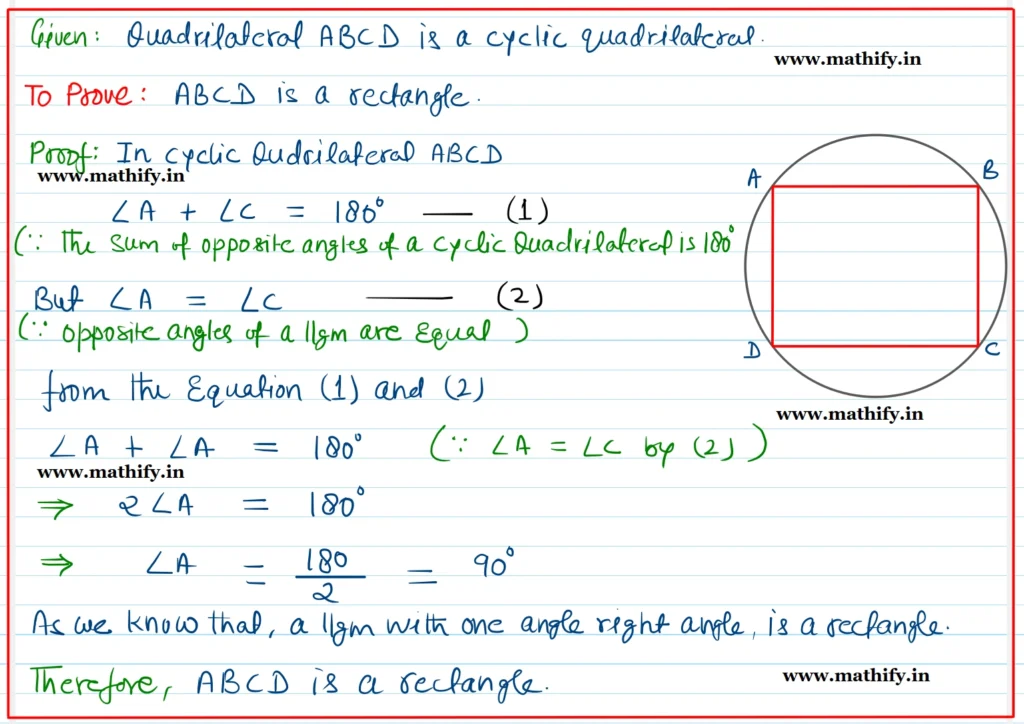 Given: Quadrilateral ABCD is a cyclic quadrilateral.
www.mathify.in
To Prove: ABCD is a rectangle.
Proof: In cyclic Qudrilateral ABCD
www.mathify.in
A
B
∠A + ∠C = 180° — (1)
(∵ The sum of opposite angles of a cyclic Quadrilateral is 180°
But ∠A = ∠C —— (2)
(∵ opposite angles of a llgm are Equal )
D
C
from the Equation (1) and (2)
www.mathify.in
∠A + ∠A = 180° (∵ ∠A = ∠C by (2))
www.mathify.in
⇒ 2∠A = 180°
⇒ ∠A = 180/2 = 90°
As we know that, a llgm with one angle right angle, is a rectangle.
Therefore, ABCD is a rectangle.
www.mathify.in